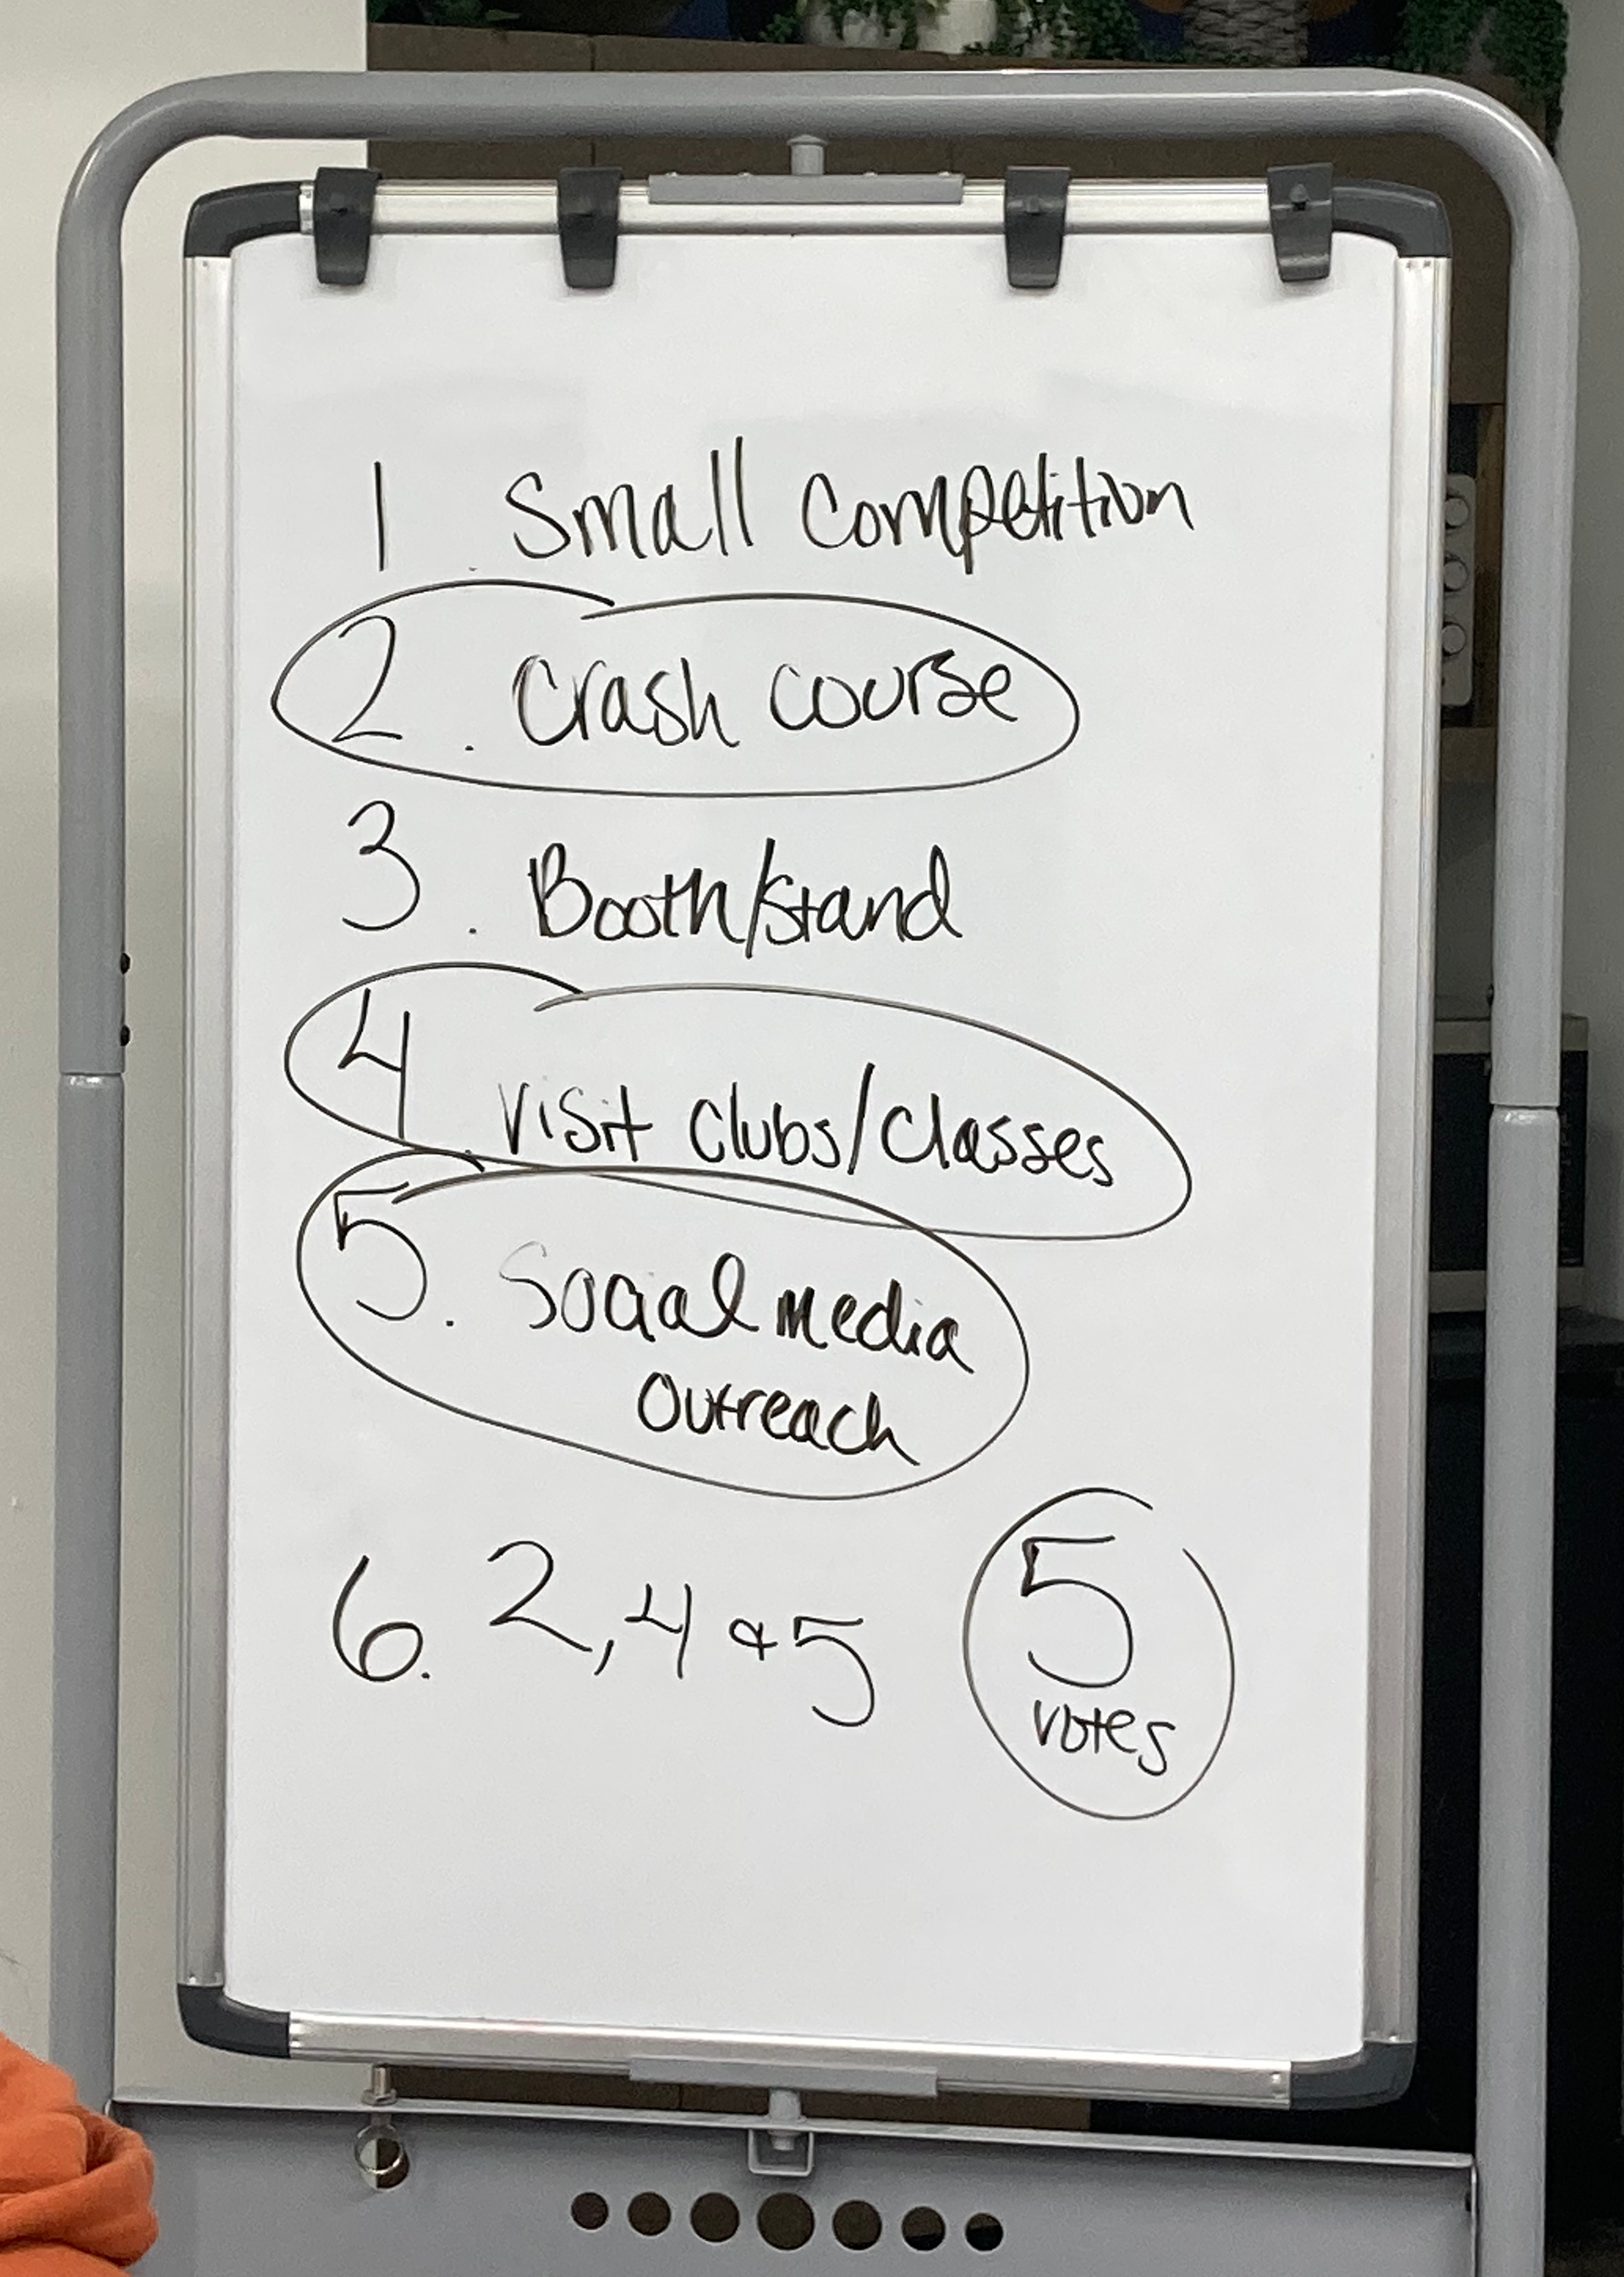 1. Small Competition
2. Crash course
3. Booth/stand
4. Visit Clubs/Classes
5. Social media
Outreach
6. 2, 4 & 5
5
votes